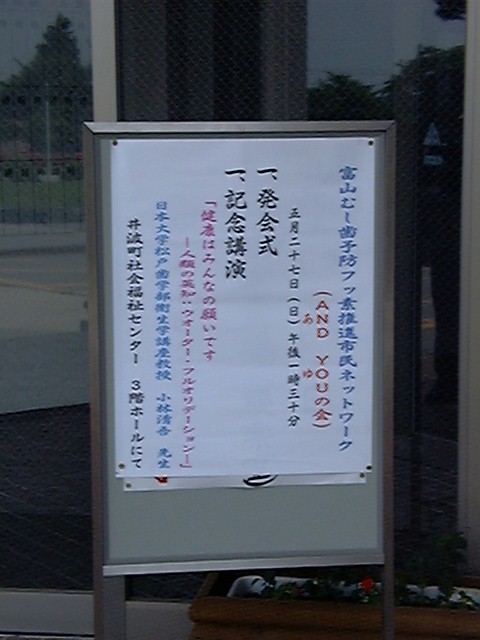 富山むし歯予防フッ素推進市民ネットワーク
(AND YOUの会)
あ ゆ
五月二十七日(日)午後一時三十分
一、発会式
一、記念講演
「健康はみんなの願いです
―人類の英知:ウオーター・フルオリデーション―」
日本大学松戸歯学部衛生学講座教授 小林清吾 先生
井波町社会福祉センター 3階ホールにて